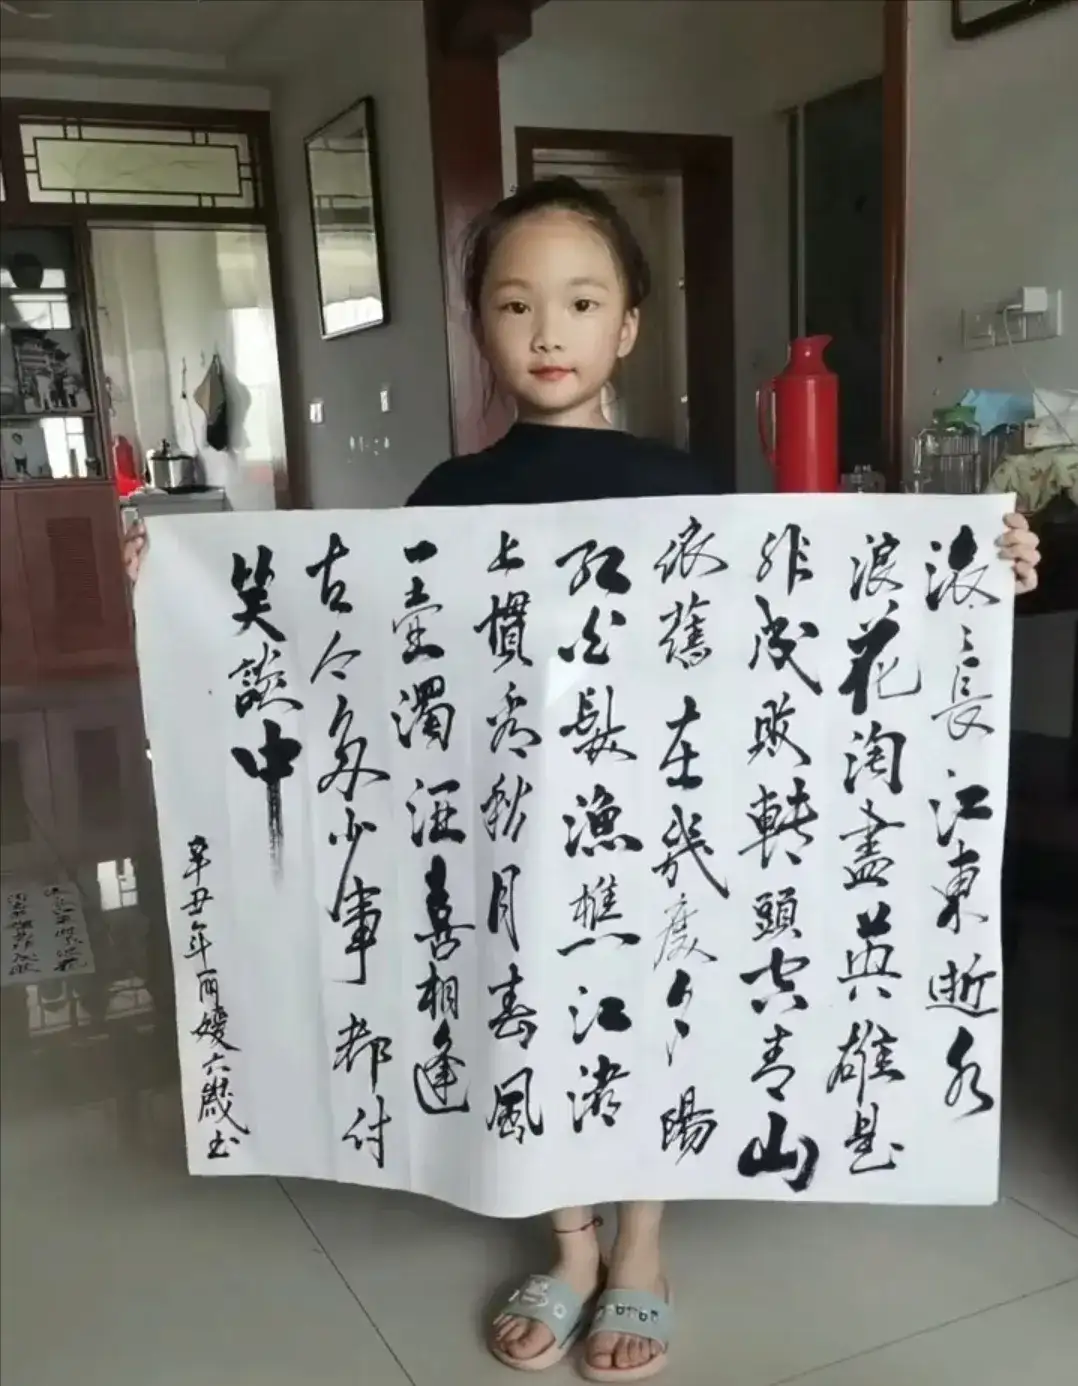 滚〻長江東逝水
浪花淘盡英雄是
非成敗轉頭空青山
依舊在幾度夕陽
紅白髮漁樵江渚
上慣看秋月春風
一壺濁酒喜相逢
古今多少事都付
笑談中
辛丑年丽媛六歲书